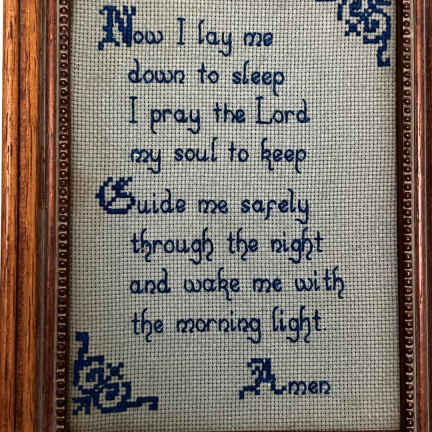 Now I lay me
down to sleep
I pray the Lord
my soul to keep
Guide me safely
through the night
and wake me with
the morning light.
Amen